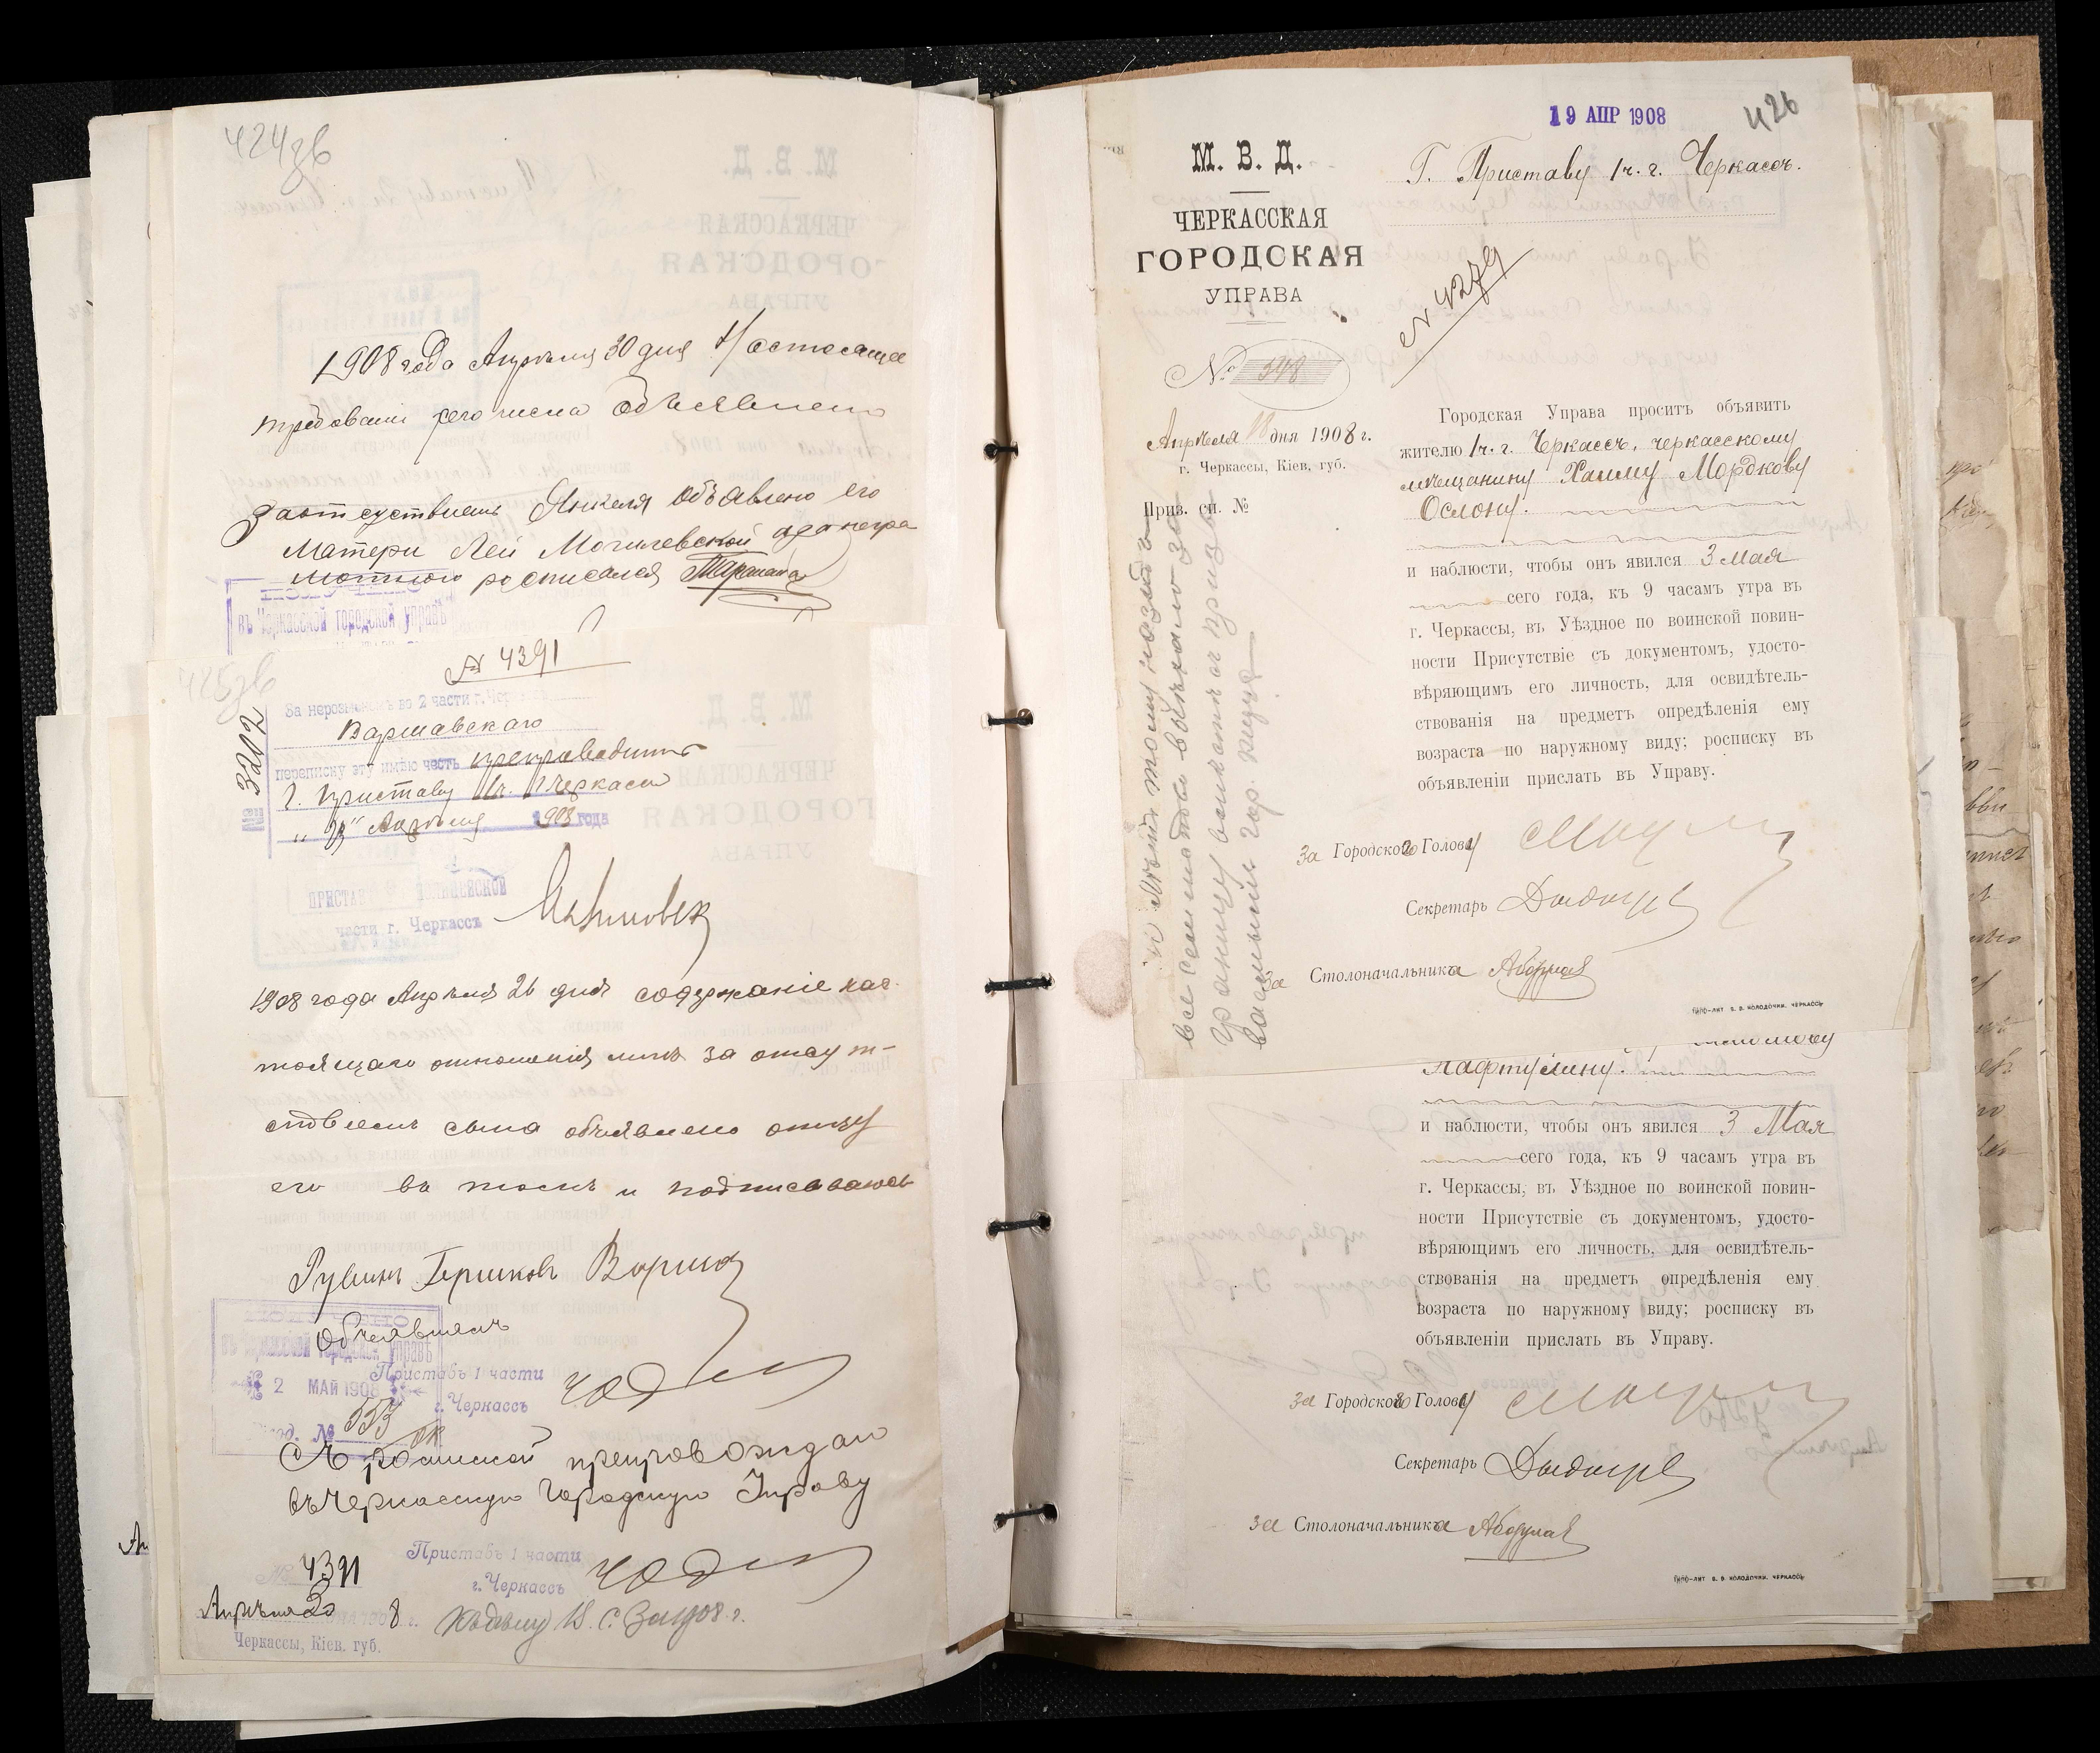 424 зв
1908 года Апрѣля 30 дня Настоящее
требованіе сего числа объявлено
За отсутствіемъ Янкеля объявлено его
Матери Леи Могилевской а за неграмотную
росписался
въ Черкасской городской управѣ
425 зв
№ 4391
№ 3202
За нерозыскомъ во 2 части г. Черкассъ
Варшавскаго
переписку эту имѣю честь препроводить
Г. Приставу 1 ч. г. Черкассъ
Апрѣля 1908 года
ПРИСТАВЪ ПОЛИЦЕЙСКОЙ
части г. Черкассъ
1908 года Апрѣля 26 дня содержаніе нас-
тоящаго отношенія мнѣ за отсут-
ствіемъ сына объявлено отцу
его въ томъ и подписываюсь
Рувинъ Гершковъ
Объявилъ
въ Черкасской городской управѣ
2 МАЙ 1908
Приставъ 1 части
г. Черкассъ
№ 553
Съ роспиской препровождаю
въ Черкасскую Городскую Управу
№ 4391
Приставъ 1 части
г. Черкассъ
Апрѣля 30 дня 1908 г.
Черкассы, Кіев. губ.
19 АПР 1908
426
М. В. Д.
ЧЕРКАССКАЯ
ГОРОДСКАЯ
УПРАВА
Г. Приставу 1 ч. г. Черкассъ.
№ 4279
№ 348
Апрѣля 18 дня 1908 г.
г. Черкассы, Кіев. губ.
Приз. сп. №
Городская Управа проситъ объявить
жителю 1 ч. г. Черкассъ, черкасскому
мѣщанину Хаиму Мордкову
Ослону.
и наблюсти, чтобы онъ явился 3 Мая
сего года, къ 9 часамъ утра въ
г. Черкассы, въ Уѣздное по воинской повин-
ности Присутствіе съ документомъ, удосто-
вѣряющимъ его личность, для освидѣтель-
ствованія на предметъ опредѣленія ему
возраста по наружному виду; росписку въ
объявленіи прислать въ Управу.
За Городского Голову
Секретарь
За Столоначальника
тому назадъ
все семейство выѣхало за
границу
ТИПО-ЛИТ В. В. КОЛОДОЧКИ. ЧЕРКАССЫ
Нафтулину.
и наблюсти, чтобы онъ явился 3 Мая
сего года, къ 9 часамъ утра въ
г. Черкассы, въ Уѣздное по воинской повин-
ности Присутствіе съ документомъ, удосто-
вѣряющимъ его личность, для освидѣтель-
ствованія на предметъ опредѣленія ему
возраста по наружному виду; росписку въ
объявленіи прислать въ Управу.
За Городского Голову
Секретарь
За Столоначальника
ТИПО-ЛИТ В. В. КОЛОДОЧКИ. ЧЕРКАССЫ